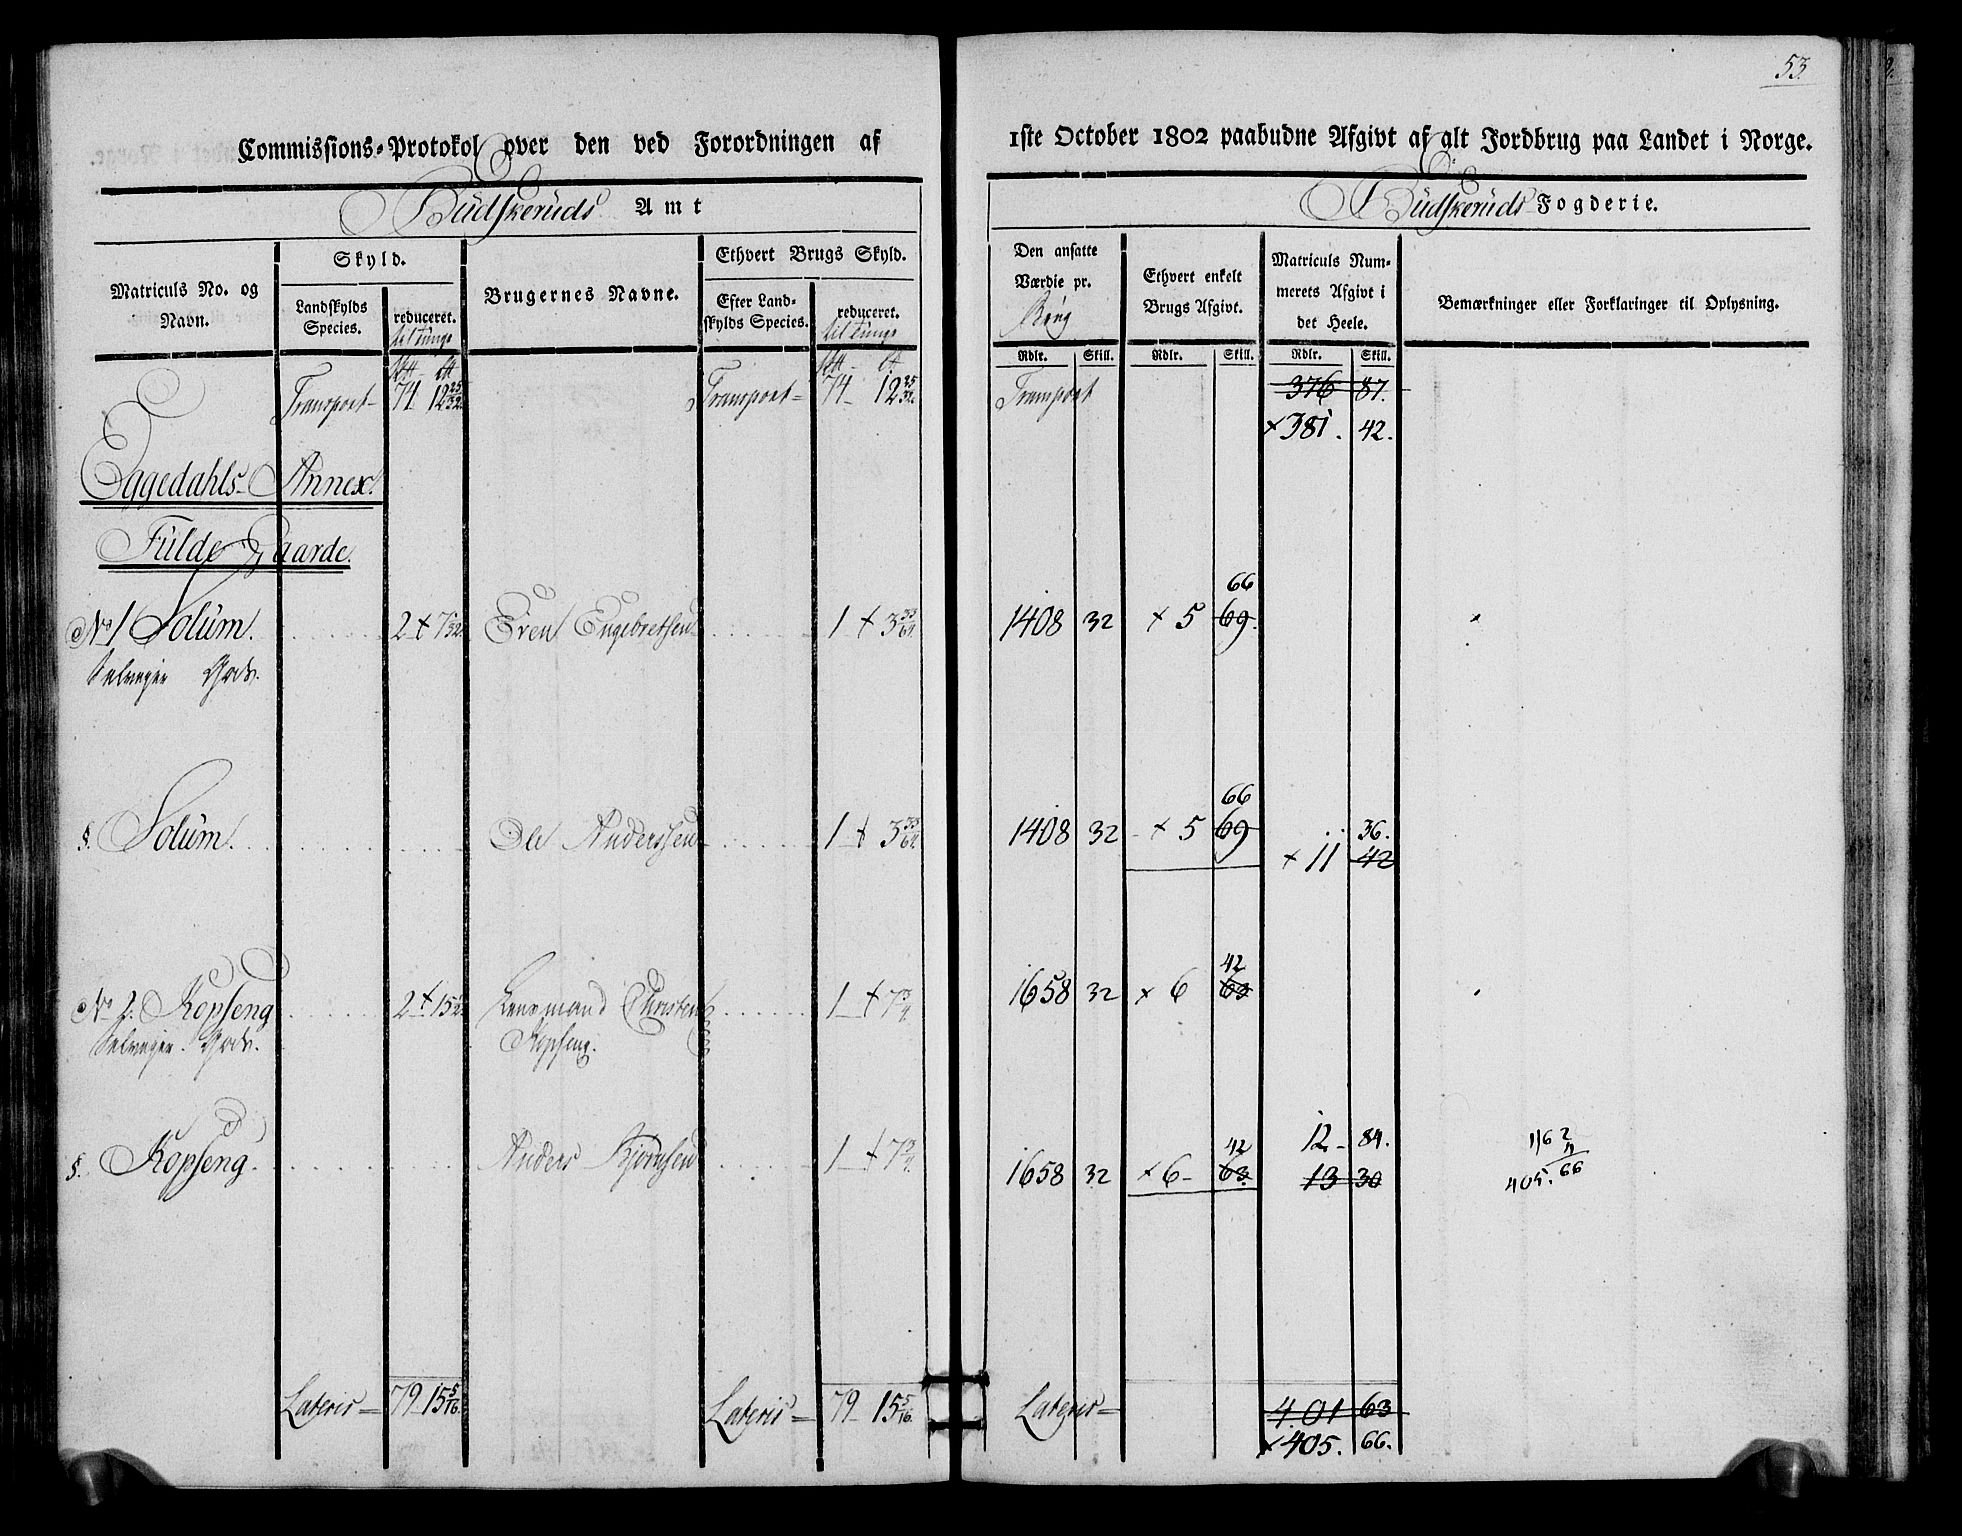 53.
Commissions-Protokol over den ved Forordningen af
1ste October 1802 paabudne Afgivt af alt Jordbrug paa Landet i Norge.
Budskeruds Amt
Budskeruds Fogderie.
Matriculs No. og Navn.
Skyld.
Landskylds Species.
reduceret. til tunge
Brugernes Navne.
Ethvert Brugs Skyld.
Efter Landskylds Species.
reduceret. til tunge
Den ansatte Værdie pr. Brug
Ethvert enkelt Brugs Afgivt.
Matriculs Nummerets Afgivt i det Heele.
Bemærkninger eller Forklaringer til Oplysning.
Rdlr. Skill. Rdlr. Skill. Rdlr. Skill.
Transport- 74 12 25/32 Transport- 74 12 25/32 Transport 376 87.
×381. 42.
Eggedahls Annex.
Fulde Gaarde.
66
No 1 Solum. 2 + 7 1/32 Sven Engebretsen 1 + 3 33/64 1408 32 × 5 69.
Selveyer Gods.
66
§. Solum. Ole Anderssen 1 + 3 33/64 1408 32 × 5 69 36.
× 11 42
42
No 2. Kopseng 2 + 15 1/2 Lensmand Christen 1 + 7 3/4 1658 32 × 6 63
Selveyer Gods. Kopseng.
42 12 - 84.
§. Kopseng. Anders Bjørnsen 1 + 7 3/4 1658 32 × 6 - 63. 13 30
1162
4
405. 66
Lateris = 79 15 5/16 Lateris = 79 15 5/16. Lateris = 401 63
×405. 66.